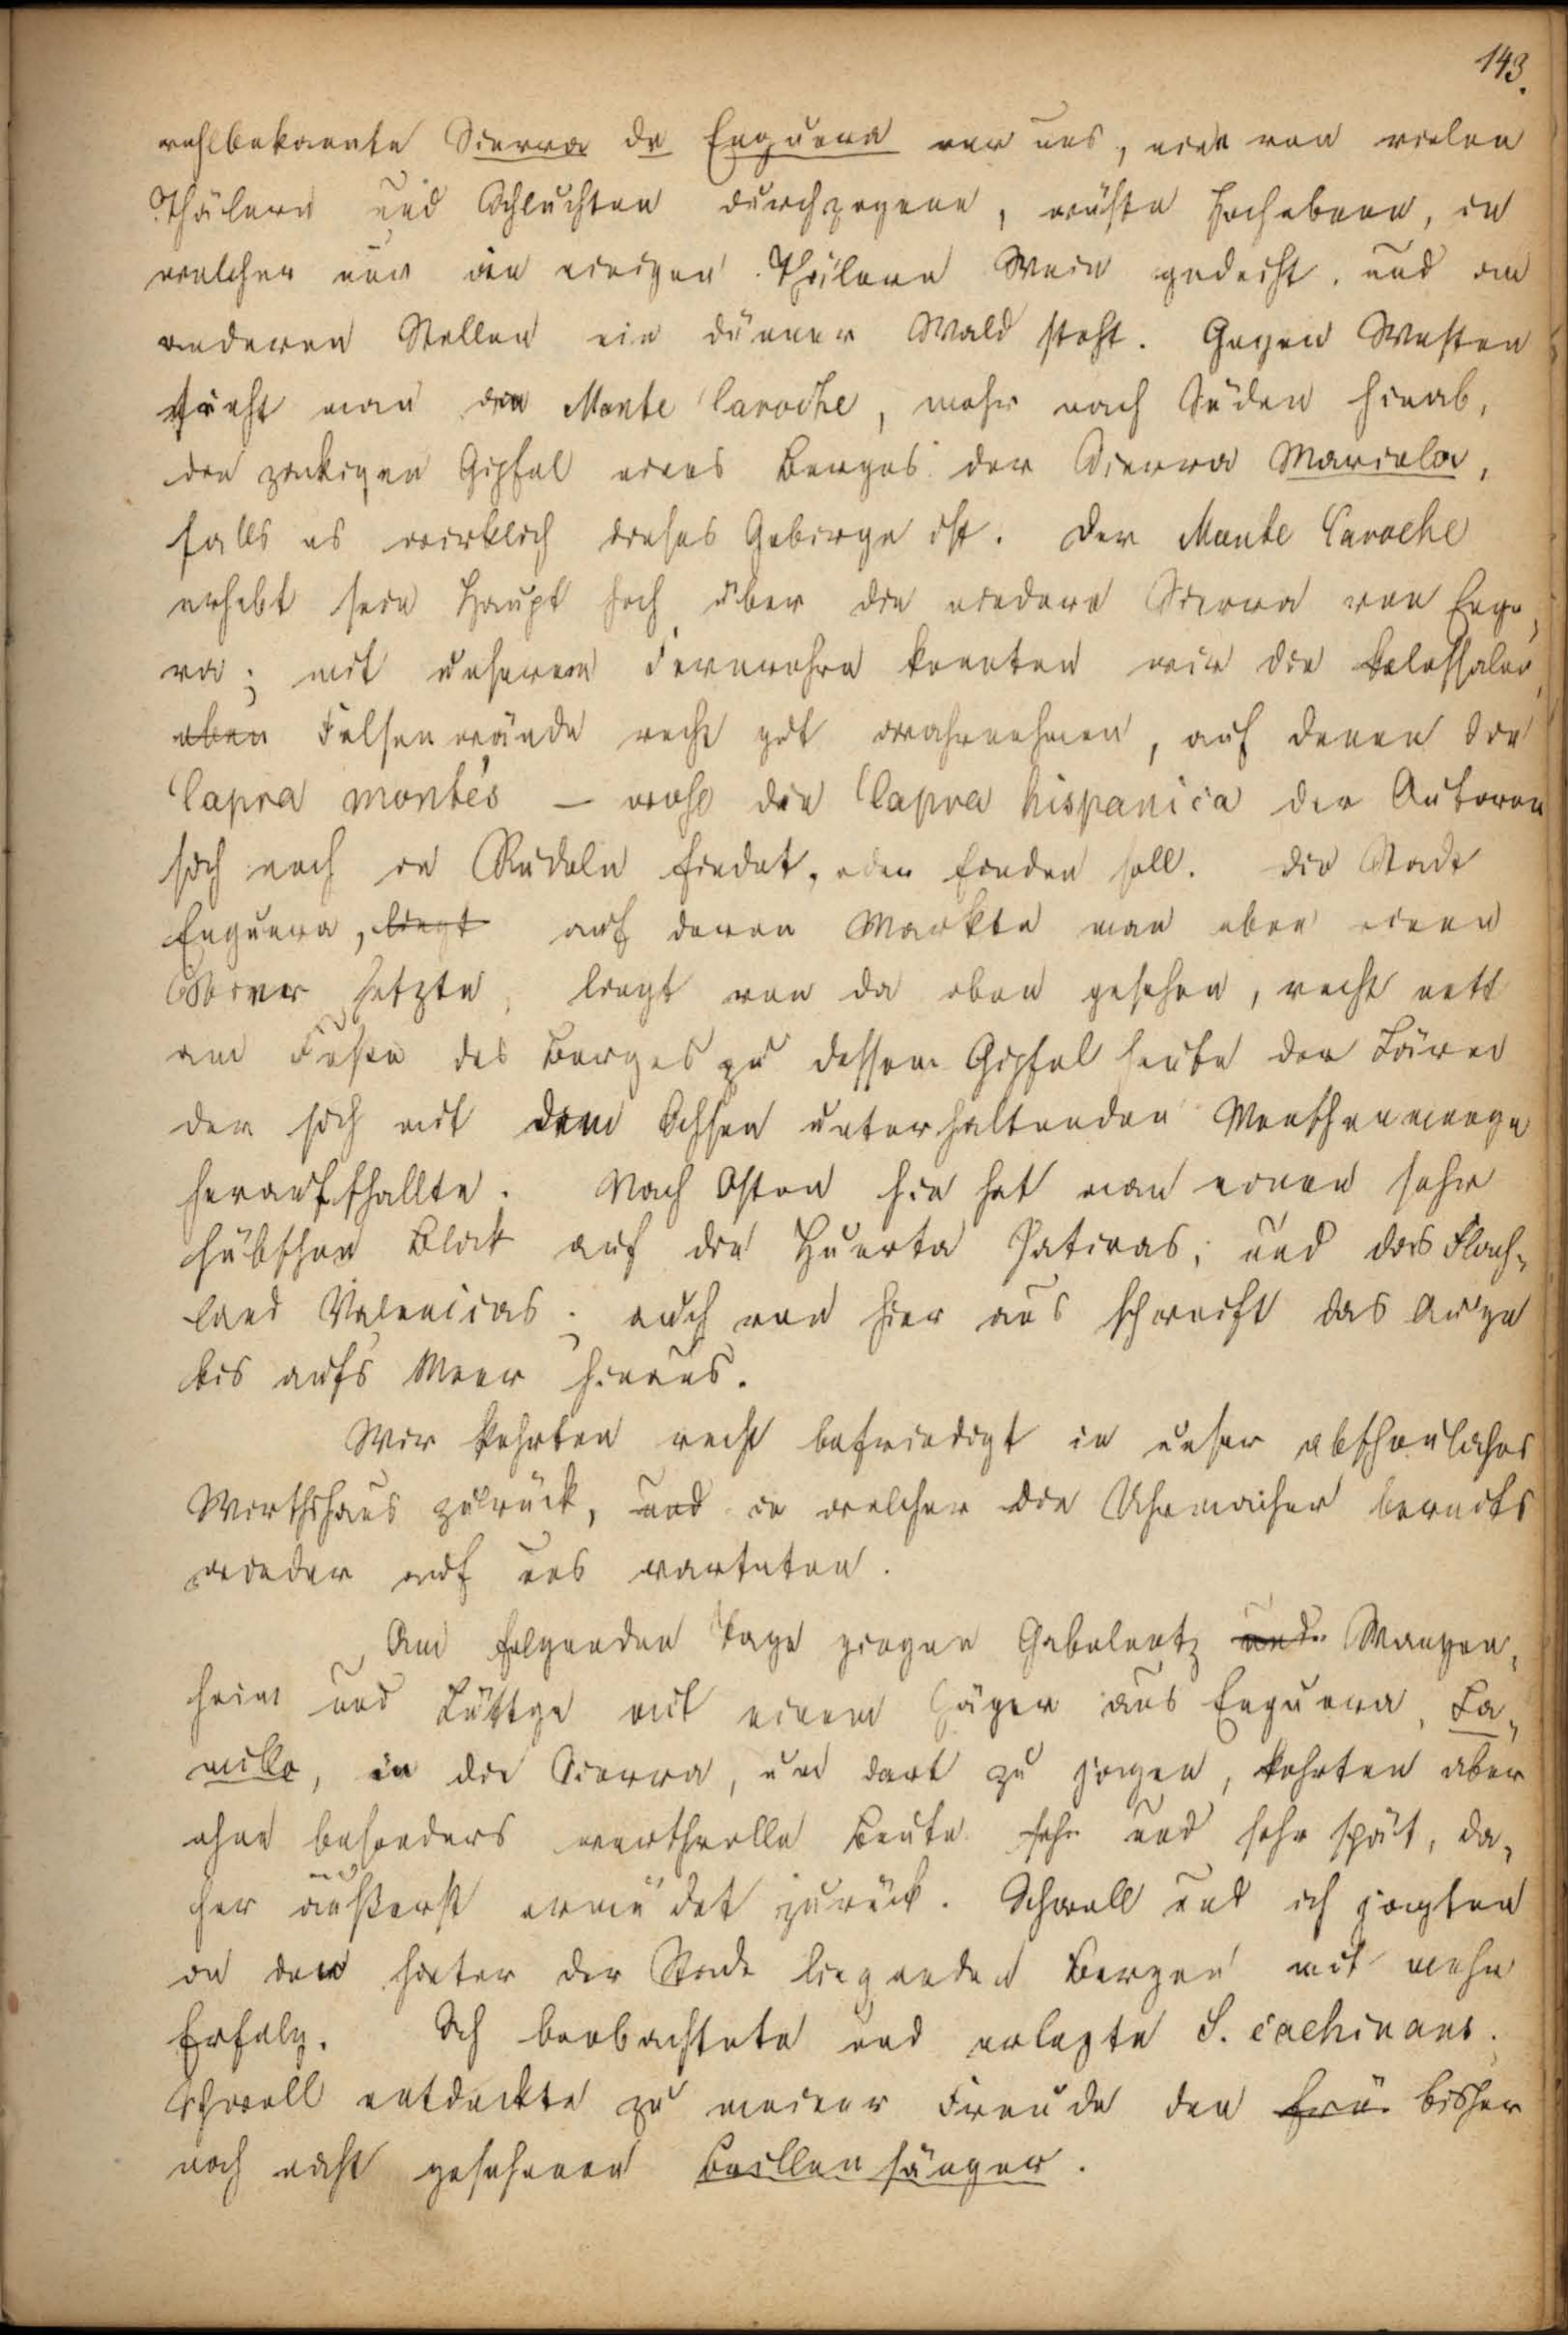 143.
wohlbekannte Sierra de Enguera vor uns, eine von vielen
Thälern und Schluchten durchzogene, wüste Hochebene, in
welcher nur an einigen Theilen Wein gedeiht, und an
anderen Stellen ein dünner Wald steht. Gegen Westen
sieht man den Monte Caroche, mehr nach Süden hinab,
den zackigen Gipfel eines Berges der Sierra Mariola,
falls es wirklich dieses Gebirge ist. Der Monte Caroche
erhebt sein Haupt hoch über die niedere Sierra von Engue-
ra; mit unserem Fernrohre konnten wir die kolossalen
eben Felsenwände recht gut wahrnehmen, auf denen die
Capra montés – wohl die Capra hispanica der Autoren
sich noch in Rudeln findet, oder finden soll. Die Stadt
Enguera, liegt auf deren Markte man eben einen
Stier hetzte, liegt von da oben gesehen, recht nett
am Fuße des Berges zu dessem Gipfel heute der Lärm
der sich mit dem Ochsen unterhaltenden Menschenmenge
heraufschallte. Nach Osten hin hat man einen sehr
hübschen Blick auf die Huerta Jativas, und das Flach-
land Valencias; auch von hier aus schweift das Auge
bis aufs Meer hinaus.
Wir kehrten recht befriedigt in unser abscheuliches
Wirthshaus zurück, und in welcher die Uhrmacher bereits
wieder auf uns warteten.
Am folgenden Tage gingen Gabelentz und Wangen-
heim und Lüttge mit einem Jäger aus Enguera, La-
millo, in die Sierra, um dort zu jagen, kehrten aber
ohne besonders werthvolle Beute sehr und sehr spät, da-
her äußerst ermüdet zurück. Schwell und ich jagten
in den hinter der Stadt liegenden Bergen mit mehr
Erfolg. Ich beobachtete und erlegte S. cachinans.
Schwell entdeckte zu meiner Freude den frü. bisher
noch nicht gesehenen Brillensänger.